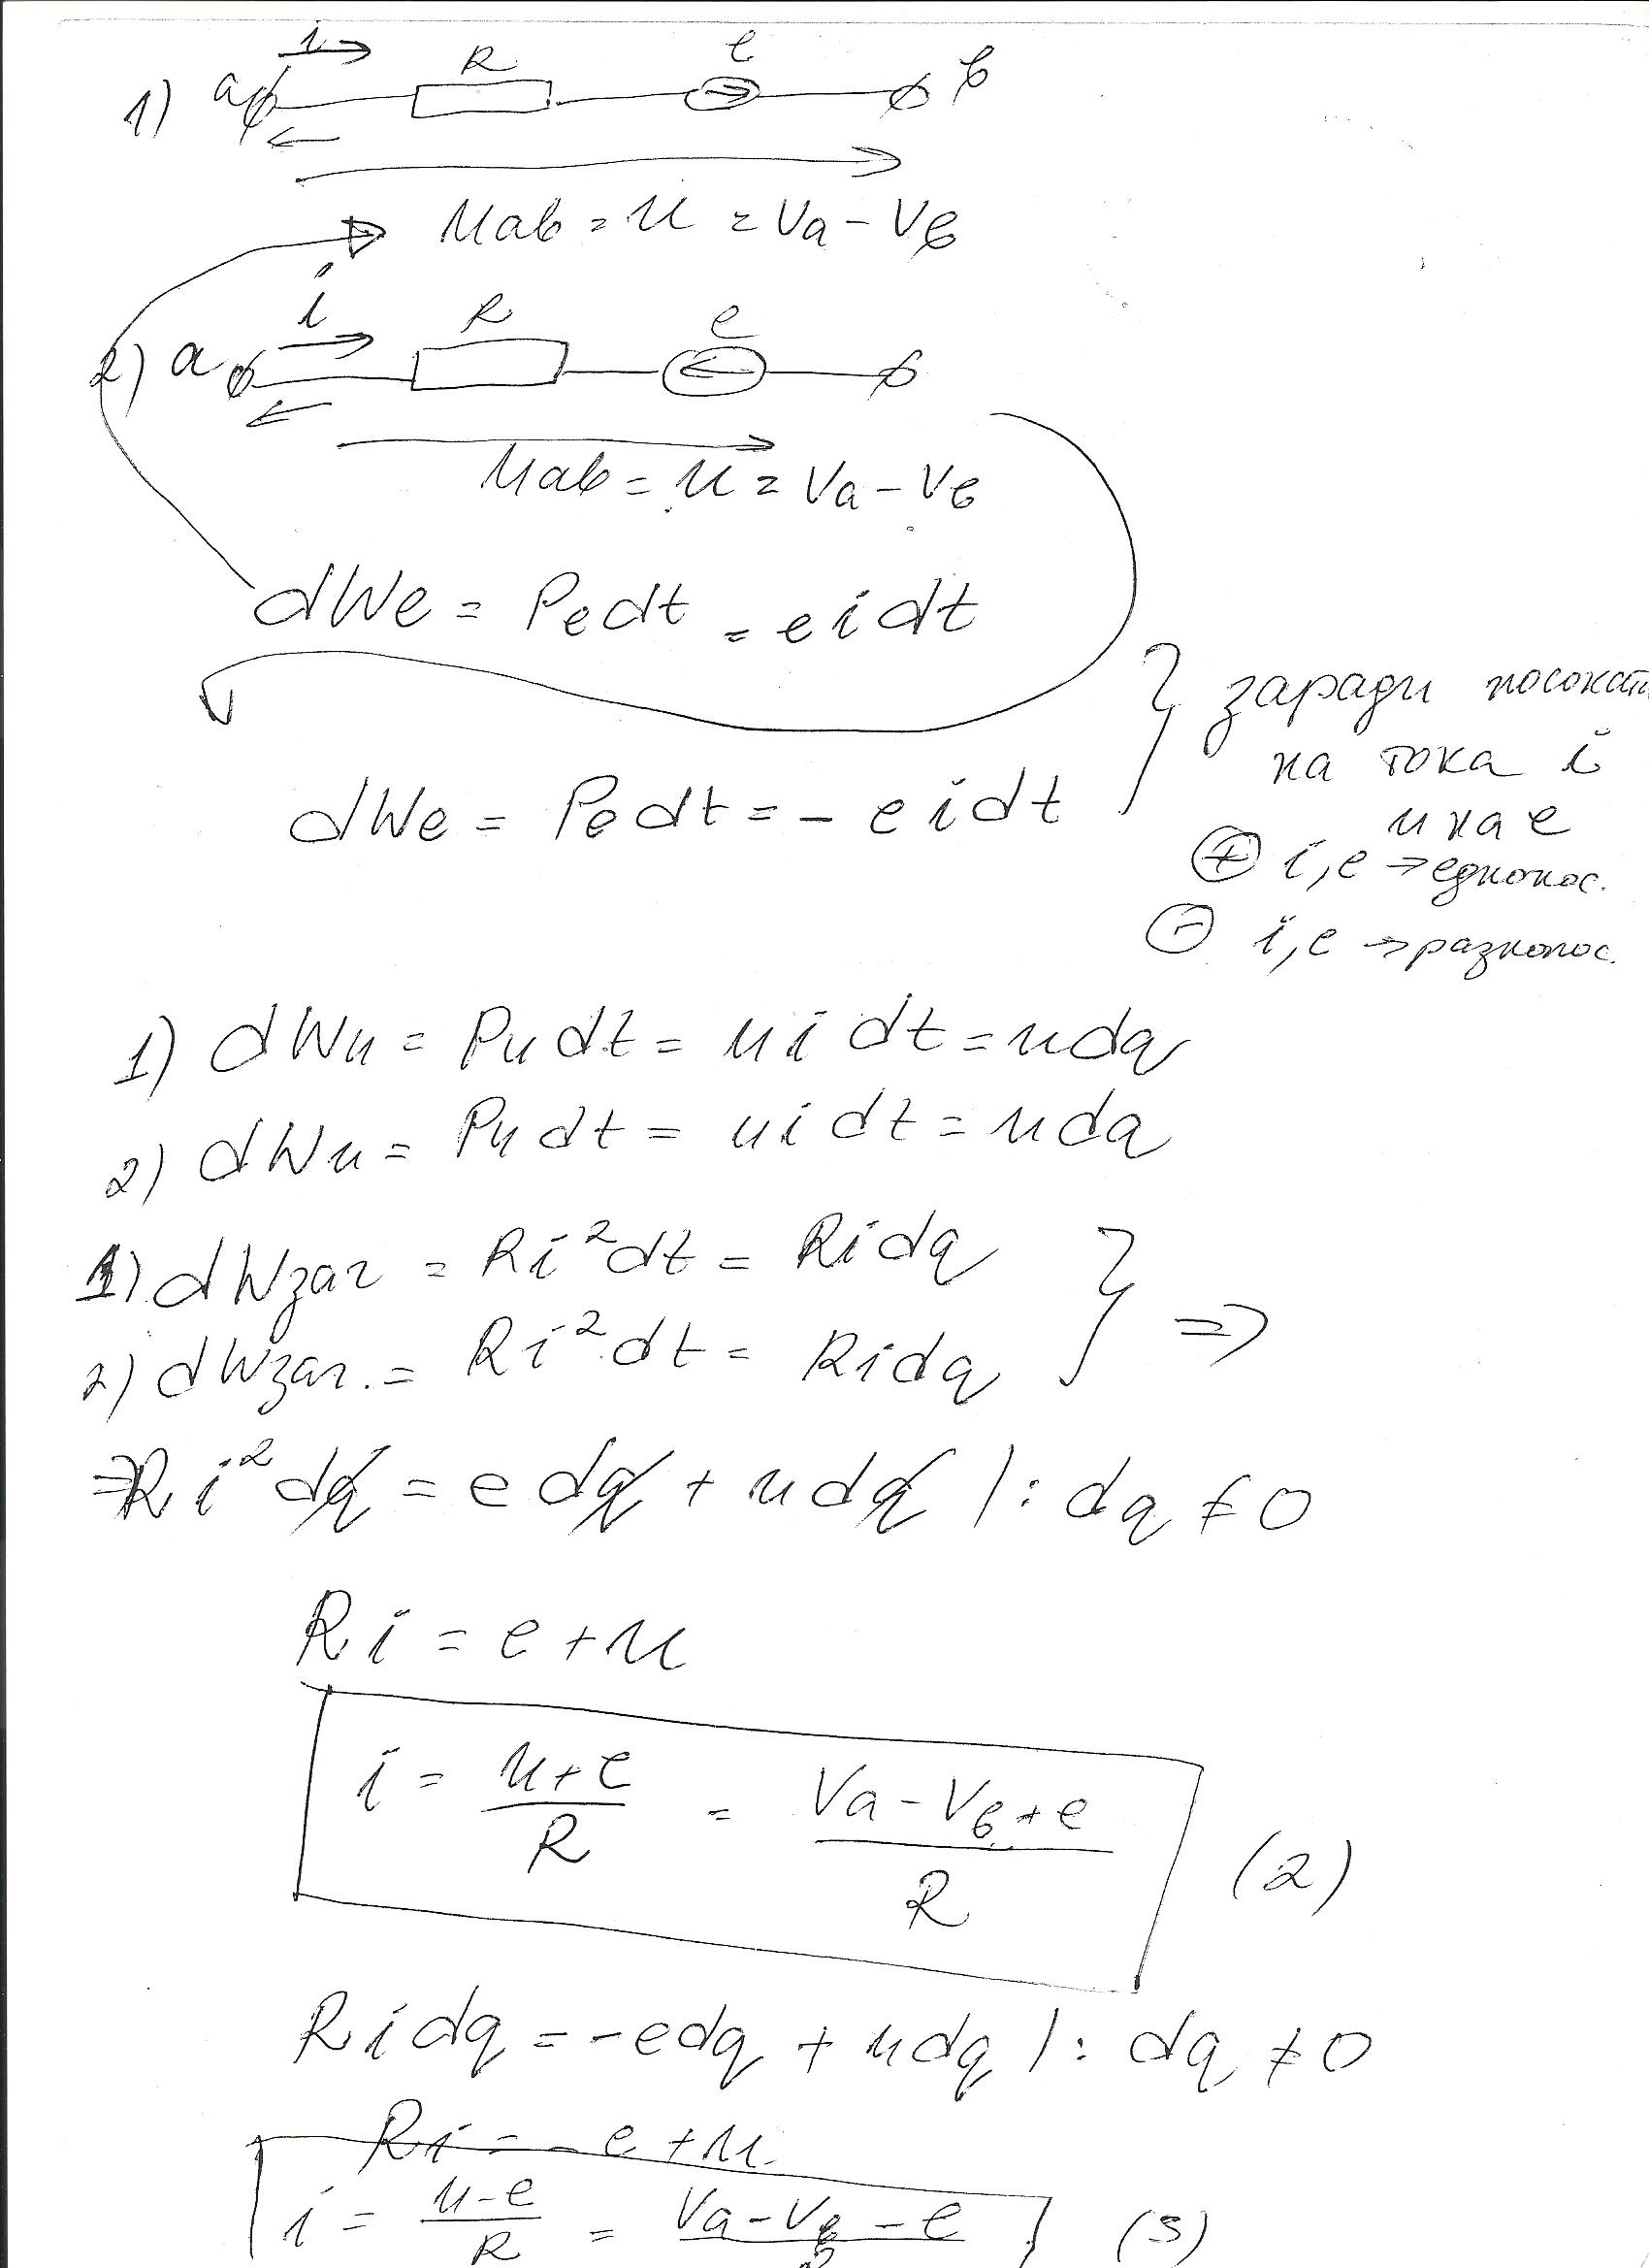 i R e
1) a b
Uab = u = Va - Vb
i R e
2) a
Uab = u = Va - Vb
dWe = Pe dt = e i dt
} заради посоката
на тока i
и на e
dWe = Pe dt = - e i dt
⊕ i, e → еднопос.
⊖ i, e → разнопос.
1) dWu = Pu dt = u i dt = u dq
2) dWu = Pu dt = u i dt = u dq
1) dWzaг = Ri² dt = Ri dq
} ⇒
2) dWzaг. = Ri² dt = Ri dq
⇒ Ri² dq = e dq + u dq | : dq ≠ 0
Ri = e + u
i = (u + e)/R = (Va - Vb + e)/R (2)
Ri dq = - e dq + u dq | : dq ≠ 0
Ri = - e + u
i = (u - e)/R = (Va - Vb - e)/R (3)